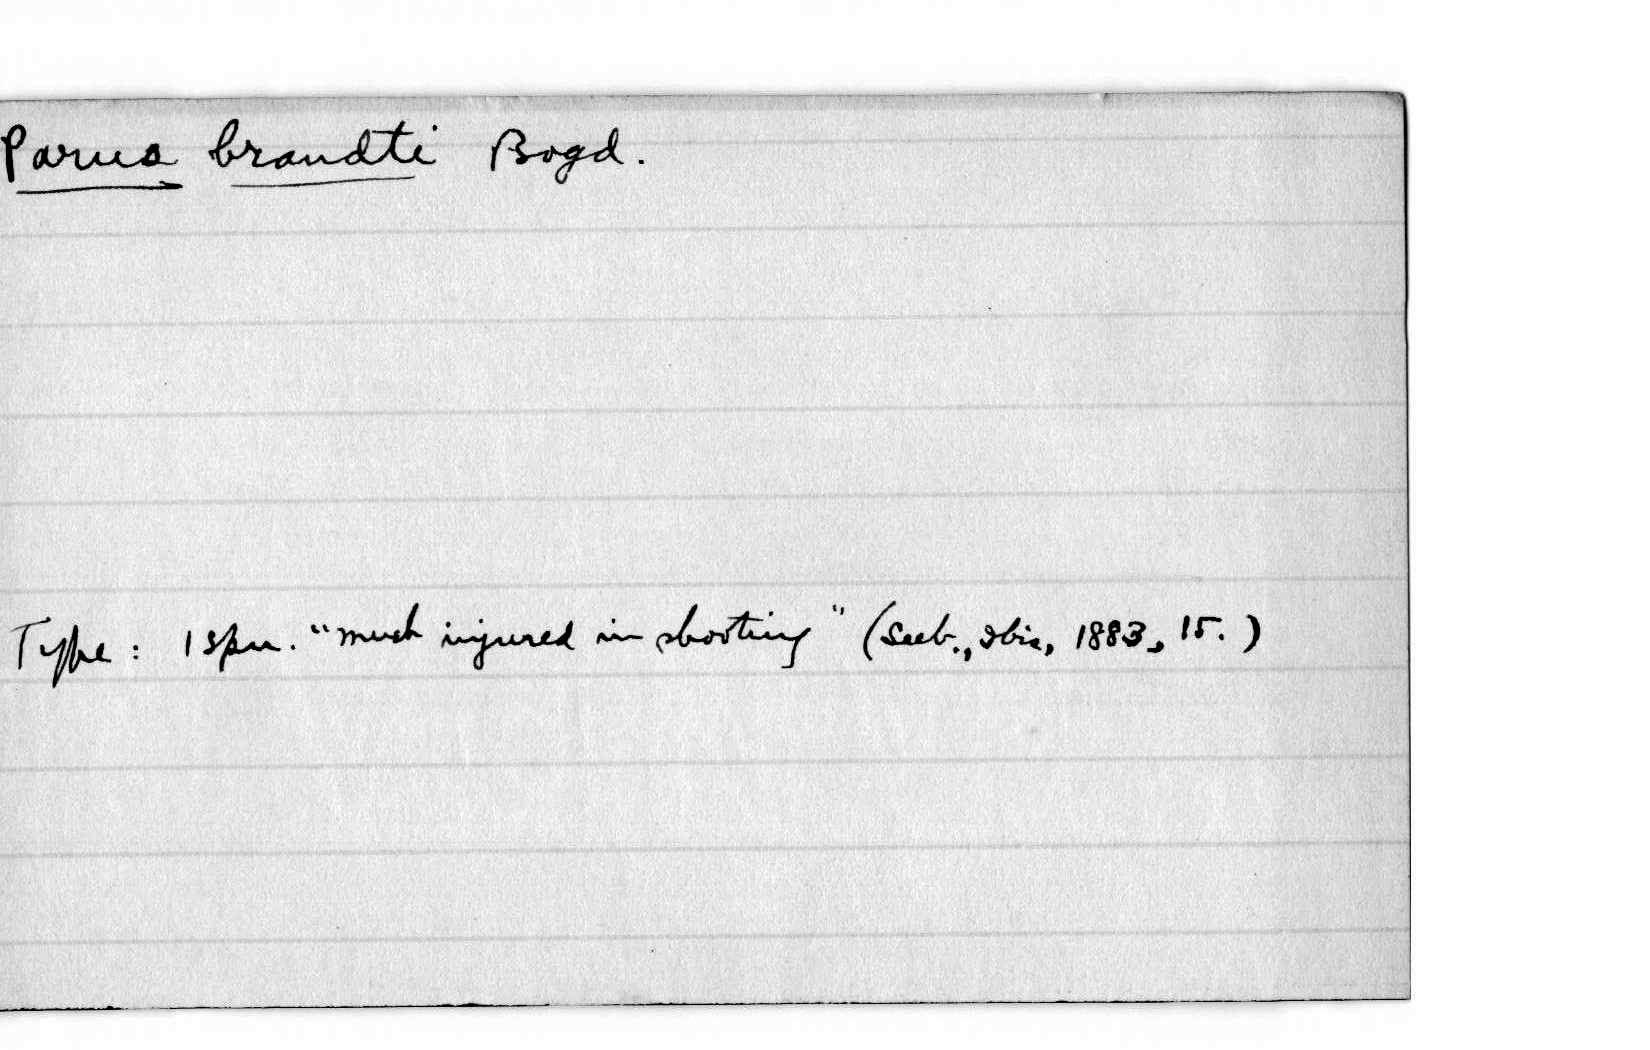 Parus brandti Bogd.
Type: 1 spm. "much injured in shooting" (Seeb., Ibis, 1883, 15.)